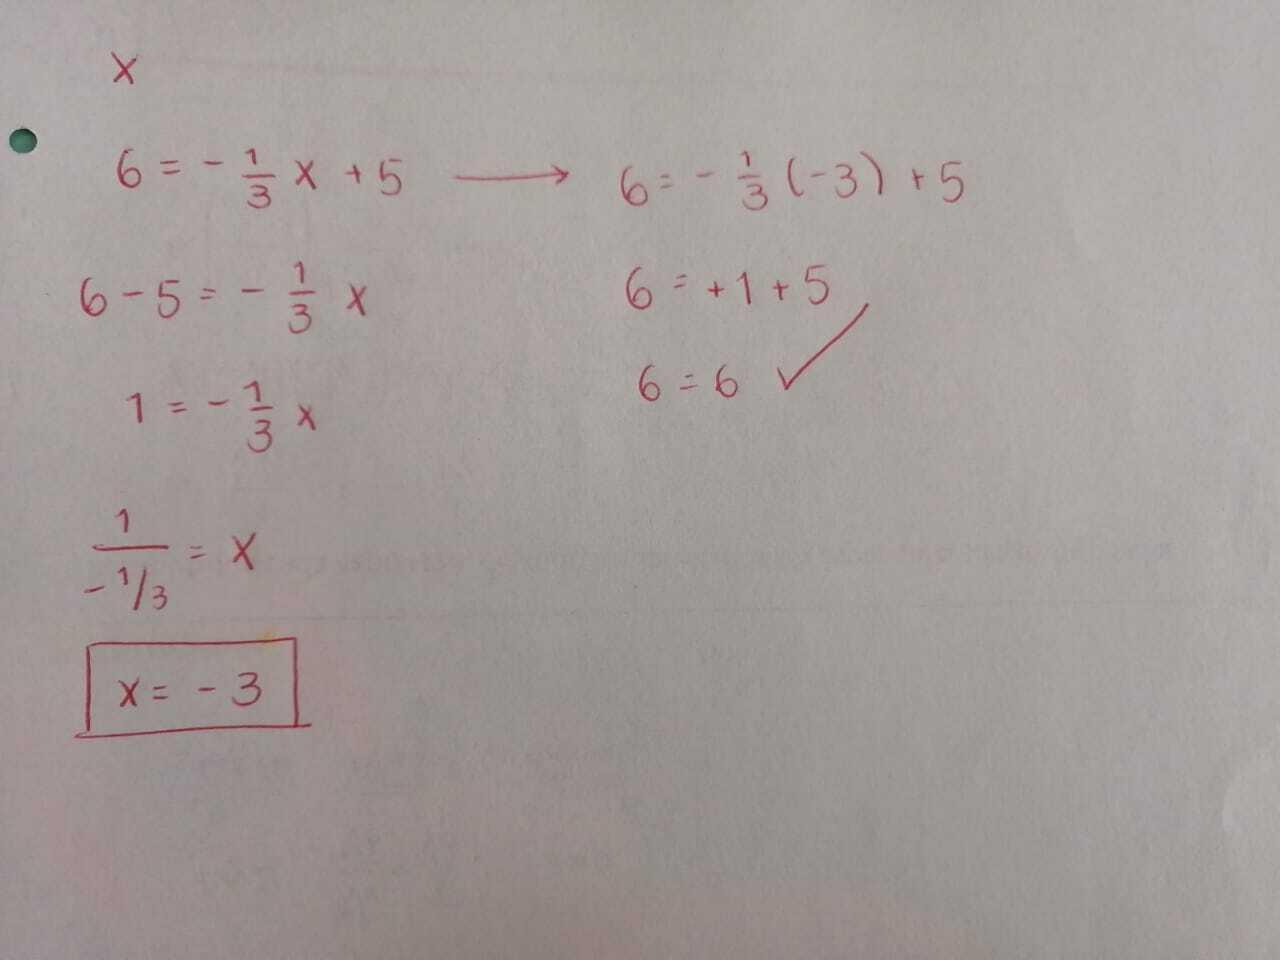 x
6 = - 1/3 x + 5 → 6 = - 1/3 (-3) + 5
6 - 5 = - 1/3 x
6 = +1 + 5
1 = - 1/3 x
6 = 6 ✓
1/(-1/3) = x
x = -3